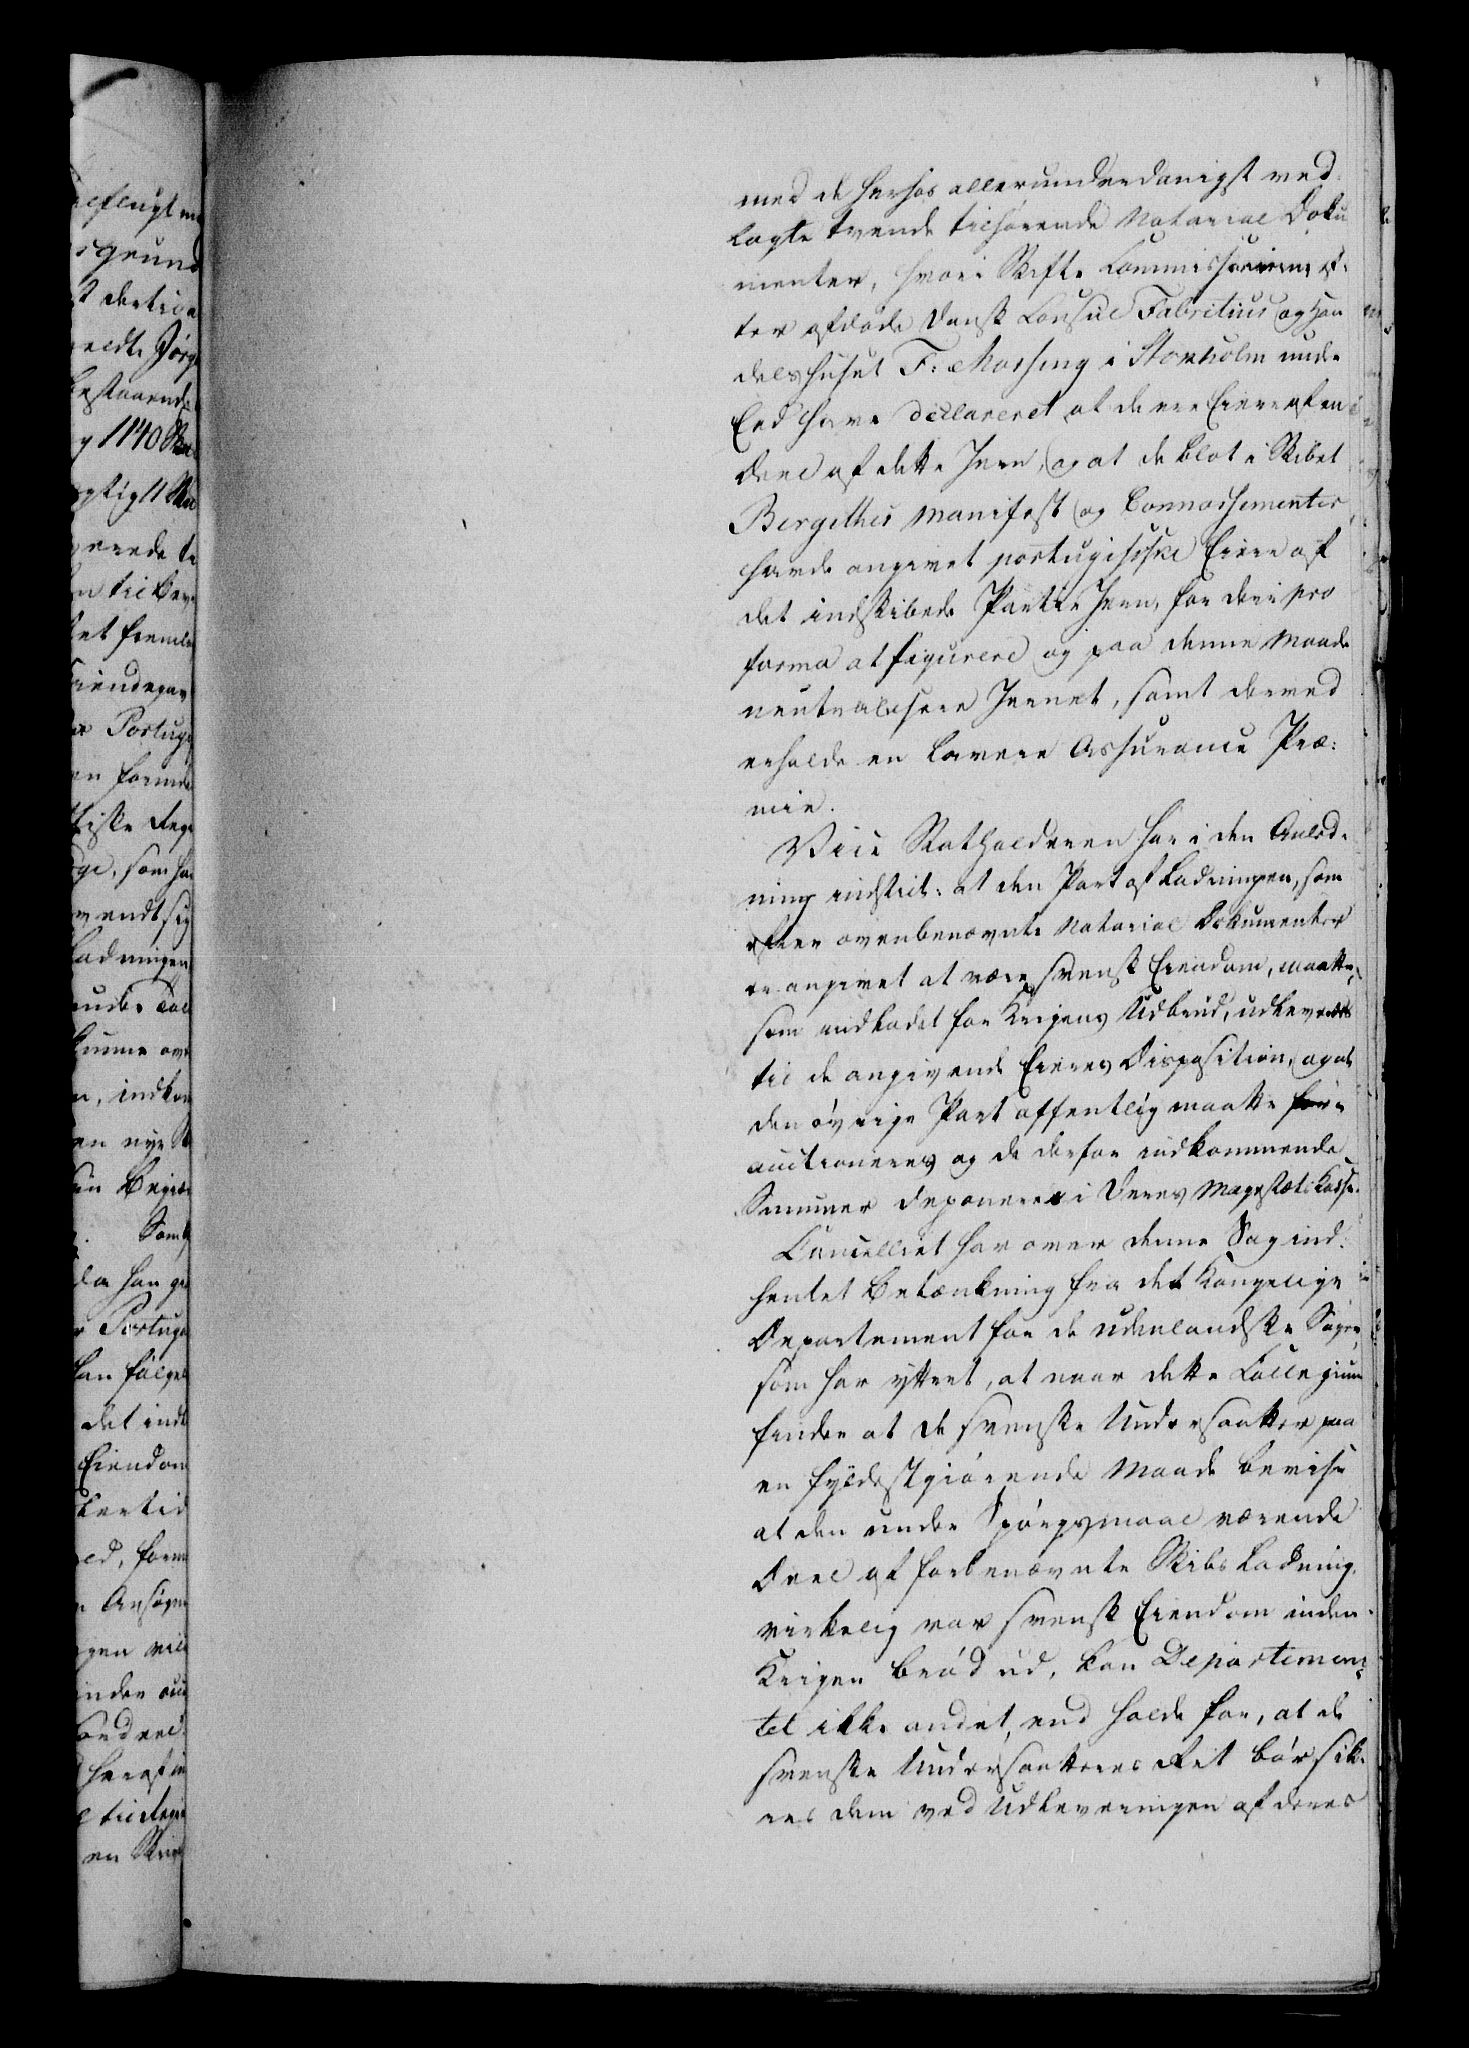 med de herhos allerunderdanigst ved¬
lagte tvende tilhørende Notarial Doku
menter, hvori Skifte Commissarierne ef¬
ter afdøde Dansk Consul Fabritius og Han
delshuset F: Massing i Stokholm unde
Eed have declareret at de ere Eiere af en
Deel af dette Jern, og at de blot i Skibet
Bergethes Manifest og Connossementer
havde angivet portugisiske Eiere af
det indskibede Partie Jern, for deri pro
forma at figurere og paa denne Maade
neutralisere Jernet, samt derved
erholde en lavere Assurance Præ:
mie.
Vice Statholderen har i den Anled¬
ning indstil: at den Part af Ladningen, som
efter ovenbenævnte Notarial Dokumenter
er angivet at være svensk Eiendom, maatte,
som indladet før Krigens Udbrud, udleveres
til de angivende Eieres Disposition, og at
den øvrige Part offentlig maatte
auctioneres og de derfor indkommende
Summer deponeres i Deres Majestæts Kasse.
Cancelliet har over denne Sag ind¬
hentet Betænkning fra det Kongelige
Departement for de udenlandske Sager,
som har yttret, at naar dette Collegium
finder at de svenske Undersaatter paa
en fyldestgiørende Maade bevise
at den under Spørgsmaal værende
Deel af forbenævnte Skibs Ladning,
virkelig var svensk Eiendom inden
Krigen brød ud, kan Departemen¬
tet ikke andet, end holde for, at de
svenske Undersaatteres Ret bør sik¬
res dem ved Udleveringen af deres